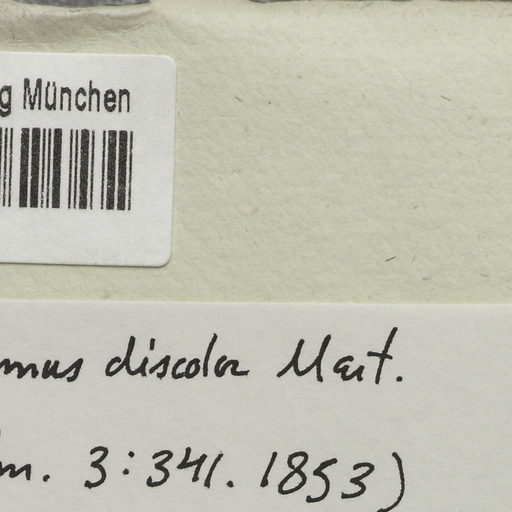 g München
mus discolor Mart.
m. 3:341. 1853)